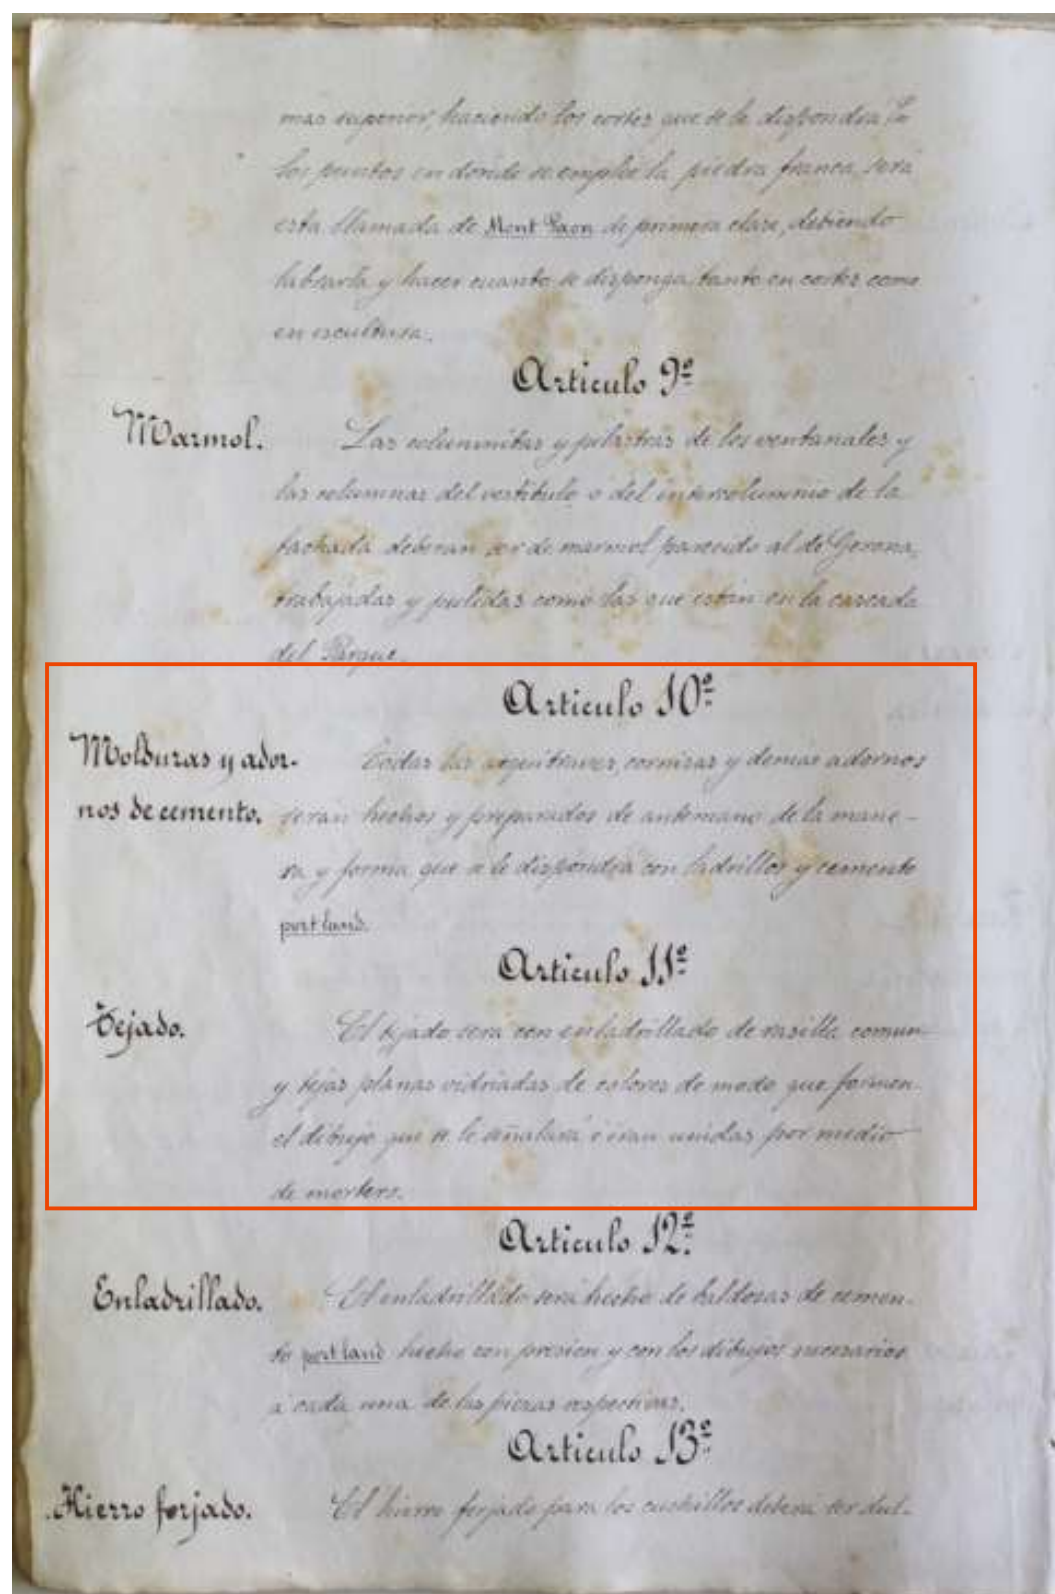 mas superior, haciendo los cortes que se le dispondrá. En
los puntos en donde se emplee la piedra franca, será
esta llamada de Mont Gaon de primera clase, debiendo
labrarla y hacer cuanto se disponga, tanto en cortes como
en escultura.
Articulo 9º
Marmol. Las columnitas y pilastras de los ventanales y
las columnas del vestibulo o del intercolumnio de la
fachada deberan ser de marmol parecido al de Gerona,
trabajadas y pulidas como las que estan en la cascada
del Parque.
Articulo 10º
Molduras y ador- Todas las arquitraves, cornisas y demas adornos
nos de cemento. seran hechos y preparados de antemano de la mane-
ra y forma que se le dispondrá con ladrillos y cemento
portland.
Articulo 11º
Tejado. El tejado será con enladrillado de rasilla comun
y tejas planas vidriadas de colores de modo que formen
el dibujo que se le señalará é iran unidas por medio
de mortero.
Articulo 12º
Enladrillado. El enladrillado será hecho de baldosas de cemen-
to portland hecho con presion y con los dibujos necesarios
á cada una de las piezas respectivas.
Articulo 13º
Hierro forjado. El hierro forjado para los cuchillos deberá ser dul-